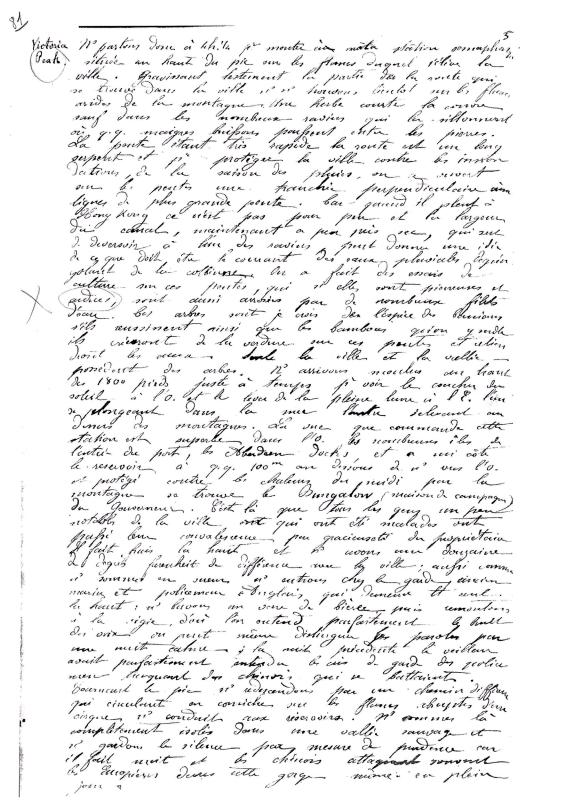 81
5
Victoria Peak
Nˢ partons donc à 4h ¼ pʳ monter au mâta station
située au haut du pic sur les flancs duquel s'élève la
ville. Gravissant lestement la partie de la route qui
se trouve dans la ville nˢ nˢ trouvons bientôt sur les flancs
arides de la montagne. Une herbe courte la couvre
sauf dans les nombreux ravins qui la sillonnent
où q.q. maigres buissons poussent entre les pierres.
La pente étant très rapide la route est un long
serpent et pʳ protéger la ville contre les inon
dations, de la saison des pluies, on a ouvert
sur les pentes une tranchée perpendiculaire aux
lignes de plus grande pente. Car quand il pleut à
Hong Kong ce n'est pas pour peu et la largeur
du canal, maintenant à peu près sec, qui sert
de déversoir à l'un des ravins peut donner une idée
de ce que doit être le courant des eaux pluviales
de la colline. On a fait des essais de
culture sur ces pentes, qui si elles sont pierreuses et
arides, sont aussi arrosées par de nombreux filets
d'eau. Les arbres sont je crois de l'espèce des
s'ils réussissent ainsi que les bambous qu'on y
ils créeront de la verdure sur ces pentes et
les eaux. la ville et la vallée
possèdent des arbres. Nˢ arrivons au haut
des 1800 pieds juste à temps pʳ voir le coucher du
soleil à l'O. et le lever de la pleine lune à l'E. l'un
se plongeant dans la mer l'autre s'élevant au
dessus des montagnes. La vue que commande cette
station est superbe dans l'O. les nombreuses îles de
l'entrée du port, les Aberdeen Docks et à mi côte
le réservoir à q.q. 100m au dessous de nˢ vers l'O.
et protégé contre les chaleurs du midi par la
montagne se trouve le Bungalow (maison de campagne)
du Gouverneur. C'est là que tous les gens un peu
notables de la ville qui ont été malades ont
passé leur convalescence par gracieuseté du propriétaire
Il fait frais là haut et nˢ avons une douzaine
de degrés farenheit de différence avec la ville; aussi comme
nˢ sommes en sueur nˢ entrons chez le garde, ancien
marin et policeman Anglais qui demeure seul
là haut; nˢ buvons un verre de bière puis remontons
à la vigie, d'où l'on entend parfaitement le bruit
des voix on peut même distinguer les paroles par
une nuit calme; la nuit précédente le veilleur
avait parfaitement entendu les cris de garde des police
men traquant des chinois qui se battaient.
Contournant le pic nˢ redescendons par un chemin différent
qui circulant en corniche sur les flancs d'un
cirque nˢ conduit aux réservoirs. Nˢ sommes là
complètement isolés dans une vallée sauvage et
nˢ gardons le silence par mesure de prudence car
il fait nuit et les chinois attaquent souvent
les Européens dans cette gorge même en plein
jour